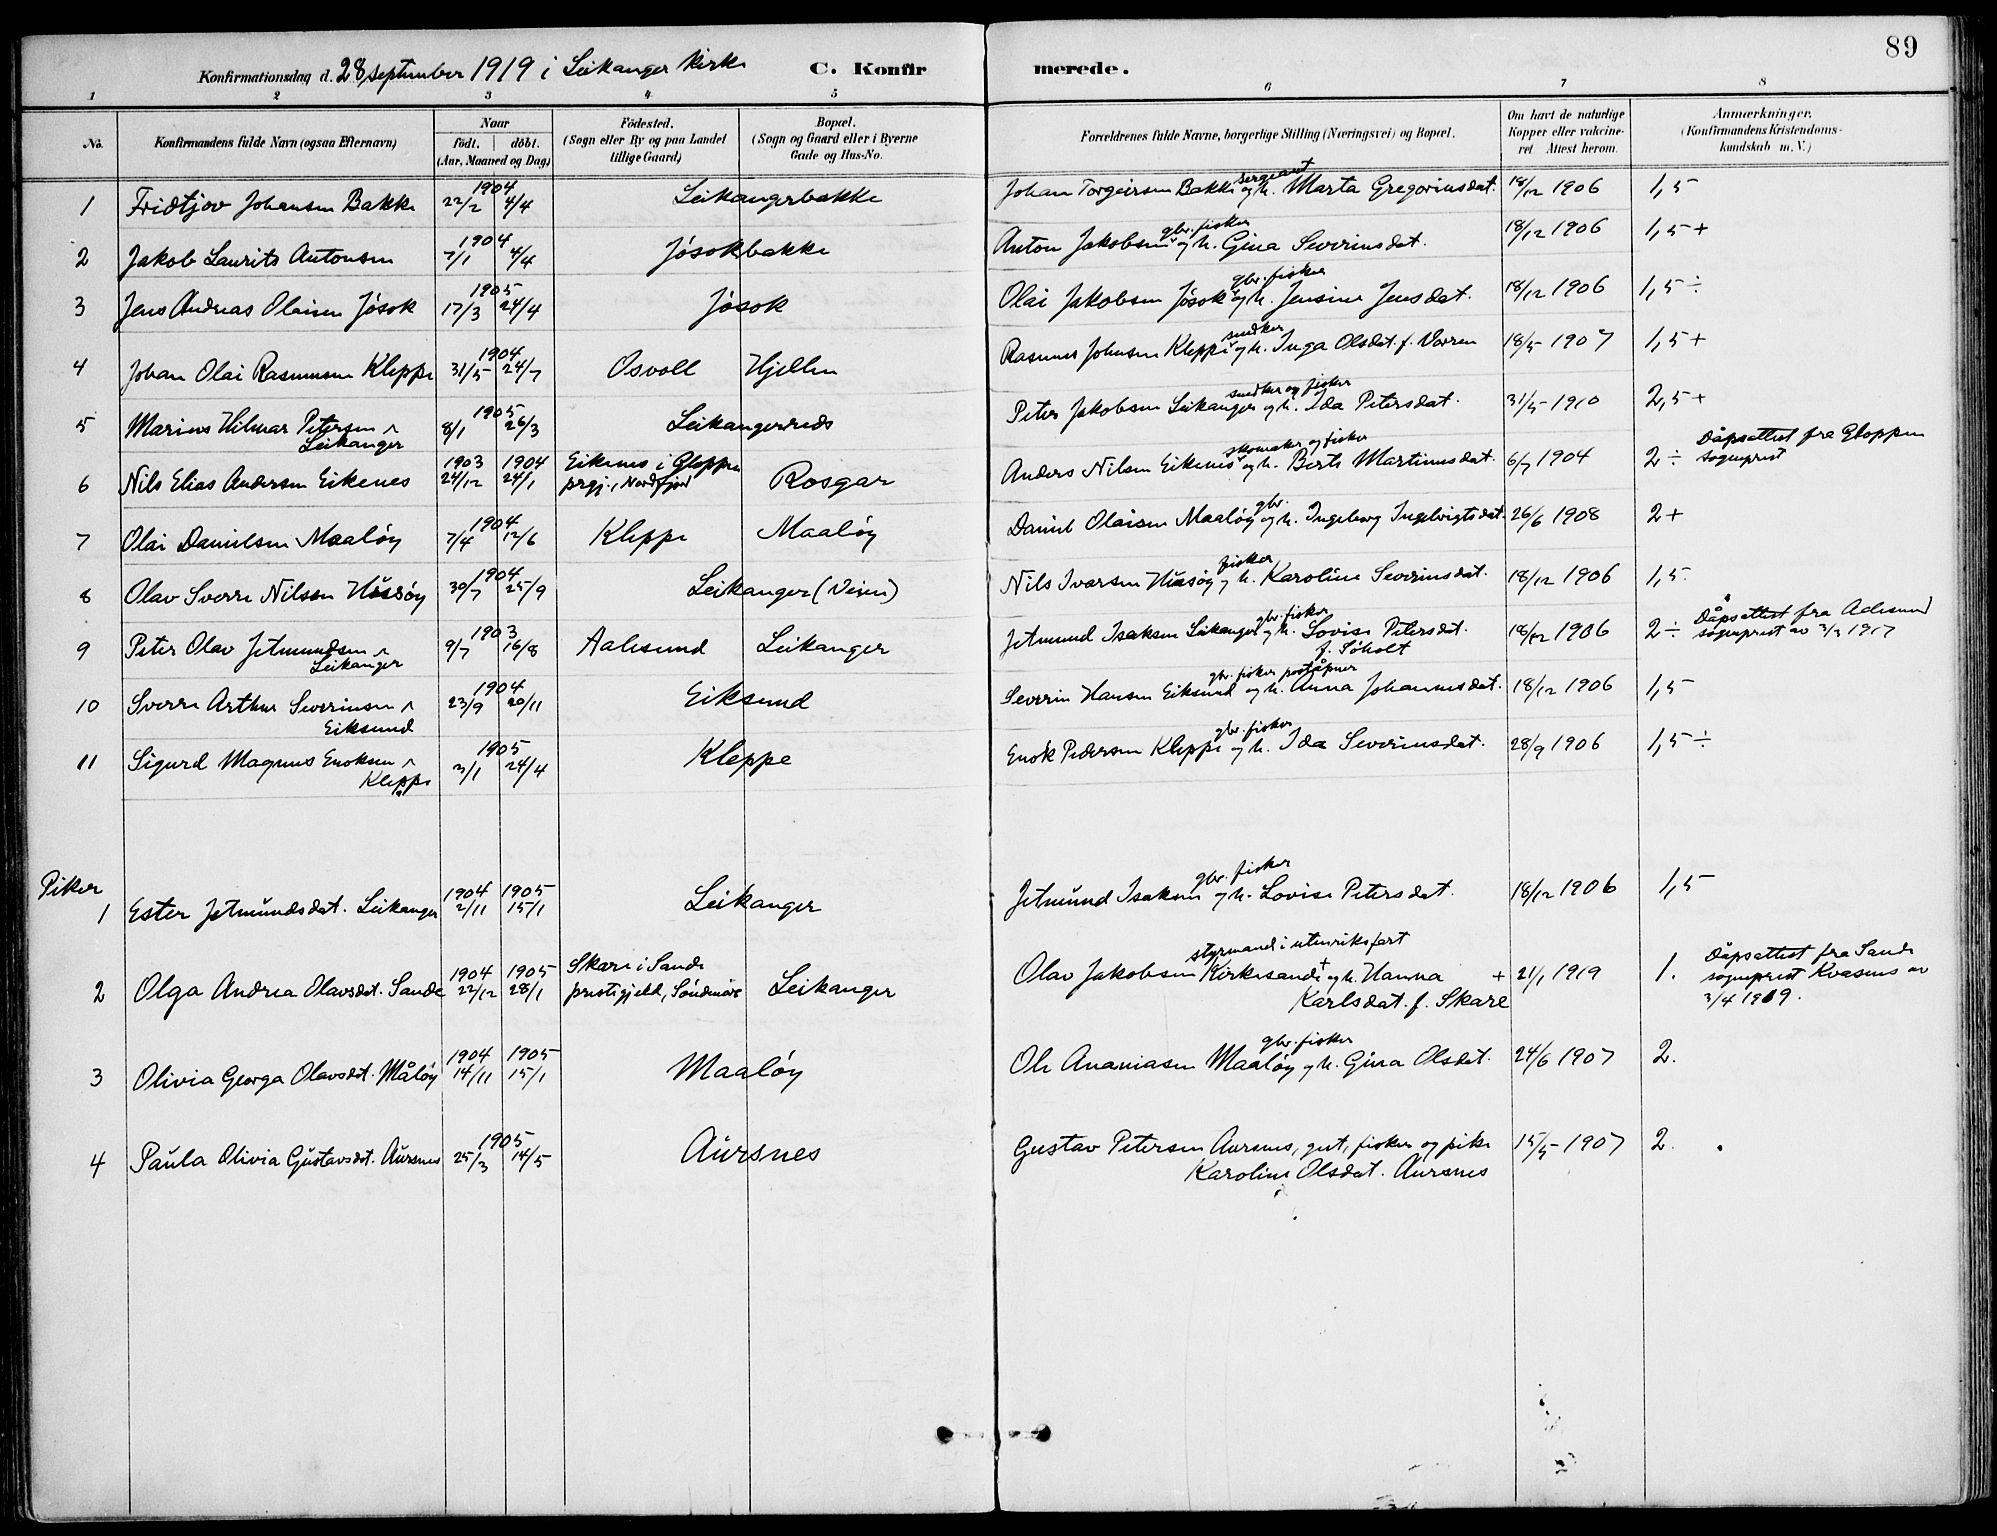 89
Konfirmationsdag d. 28 september 1919 i Leikanger kirke C. Konfirmerede.
1 2 3 4 5 6 7 8
No. Konfirmandens fulde Navn (ogsaa Efternavn) Naar födt. döbt. (Aar, Maaned og Dag) Födested. (Sogn eller By og paa Landet tillige Gaard) Bopæl. (Sogn og Gaard eller i Byerne Gade og Hus-No. Forældrenes fulde Navne, borgerlige Stilling (Næringsvei) og Bopæl. Om havt de naturlige Kopper eller vakcineret. Attest herom. Anmærkninger. (Konfirmandens Kristendomskundskab m.V.)
1 Fridtjov Johansen Bakke 1904 22/2 4/4 Leikangerbakke Johan Torgeirsen Bakke sergeant og h. Marta Gregoriusdat. 18/12 1906 1,5
2 Jakob Laurits Antonsen 1904 7/1 4/4 Jøsokbakke Anton Jakobsen gbr. fisker og h. Gina Severinsdat. 18/12 1906 1,5+
3 Jens Andreas Olaisen Jøsok 1905 17/3 24/4 Jøsok Olai Jakobsen Jøsok gbr. fisker og h. Jensine Jensdat. 18/12 1906 1,5÷
4 Johan Olai Rasmussen Kleppe 1904 31/5 24/7 Osvoll Hjellen Rasmus Johnsen Kleppe snedker og h. Inga Olsdat. f. Varren 18/5 1907 1,5+
5 Marius Hilmar Petersen Leikanger 1905 8/1 26/3 Leikangerreds Peter Jakobsen Leikanger snedker og fisker og h. Ida Petersdat. 31/5 1910 2,5+
6 Nils Elias Andersen Eikenes 1903 24/12 1904 24/1 Eikenes i Gloppen prgj., Nordfjord Rosgar Anders Nilsen Eikenes skomaker og fisker og h. Berte Martinusdat. 6/7 1904 2÷ Dåpsattest fra Gloppen sogneprest
7 Olai Danielsen Maaløy 1904 7/4 12/6 Kleppe Maaløy Daniel Olaisen Maaløy gbr. og h. Ingeborg Ingebrigtsdat. 26/6 1908 2+
8 Olav Sverre Nilsen Husøy 1904 30/7 25/9 Leikanger (Veien) Nils Ivarsen Husøy fisker og h. Karoline Severinsdat. 18/12 1906 1,5.
9 Peter Olav Jetmundsen Leikanger 1903 9/7 16/8 Aalesund Leikanger Jetmund Isaksen Leikanger gbr. fisker og h. Lovise Petersdat. f. Søholt 18/12 1906 2÷ Dåpsattest fra Aalesund sogneprest av 3/3 1917
10 Sverre Arthur Severinsen Eiksund 1904 23/9 20/11 Eiksund Severin Hansen Eiksund gbr. fisker poståpner og h. Anna Johannesdat. 18/12 1906 1,5
11 Sigurd Magnus Enoksen Kleppe 1905 3/1 24/4 Kleppe Enok Pedersen Kleppe gbr. fisker og h. Ida Severinsdat. 28/9 1906 1,5÷
Piker
1 Ester Jetmundsdat. Leikanger 1904 2/11 1905 15/1 Leikanger Jetmund Isaksen gbr. fisker og h. Lovise Petersdat. 18/12 1906 1,5
2 Olga Andrea Olavsdat. Sande 1904 22/12 1905 28/1 Skare i Sande prestegjeld, Søndmøre Leikanger Olav Jakobsen Kirkesande + styrmand i utenriksfart og h. Hanna Karlsdat. f. Skare + 21/1 1919 1. Dåpsattest fra Sande sogneprest Kvasnes av 3/4 1919.
3 Olivia Georga Olavsdat. Måløy 1904 14/11 1905 15/1 Maaløy Ole Ananiasen Maaløy gbr. fisker og h. Gina Olsdat. 24/6 1907 2.
4 Paula Olivia Gustavsdat. Aursnes 1905 25/3 14/5 Aursnes Gustav Petersen Aursnes, gut, fisker og pike Karoline Olsdat. Aursnes 15/5 1907 2.